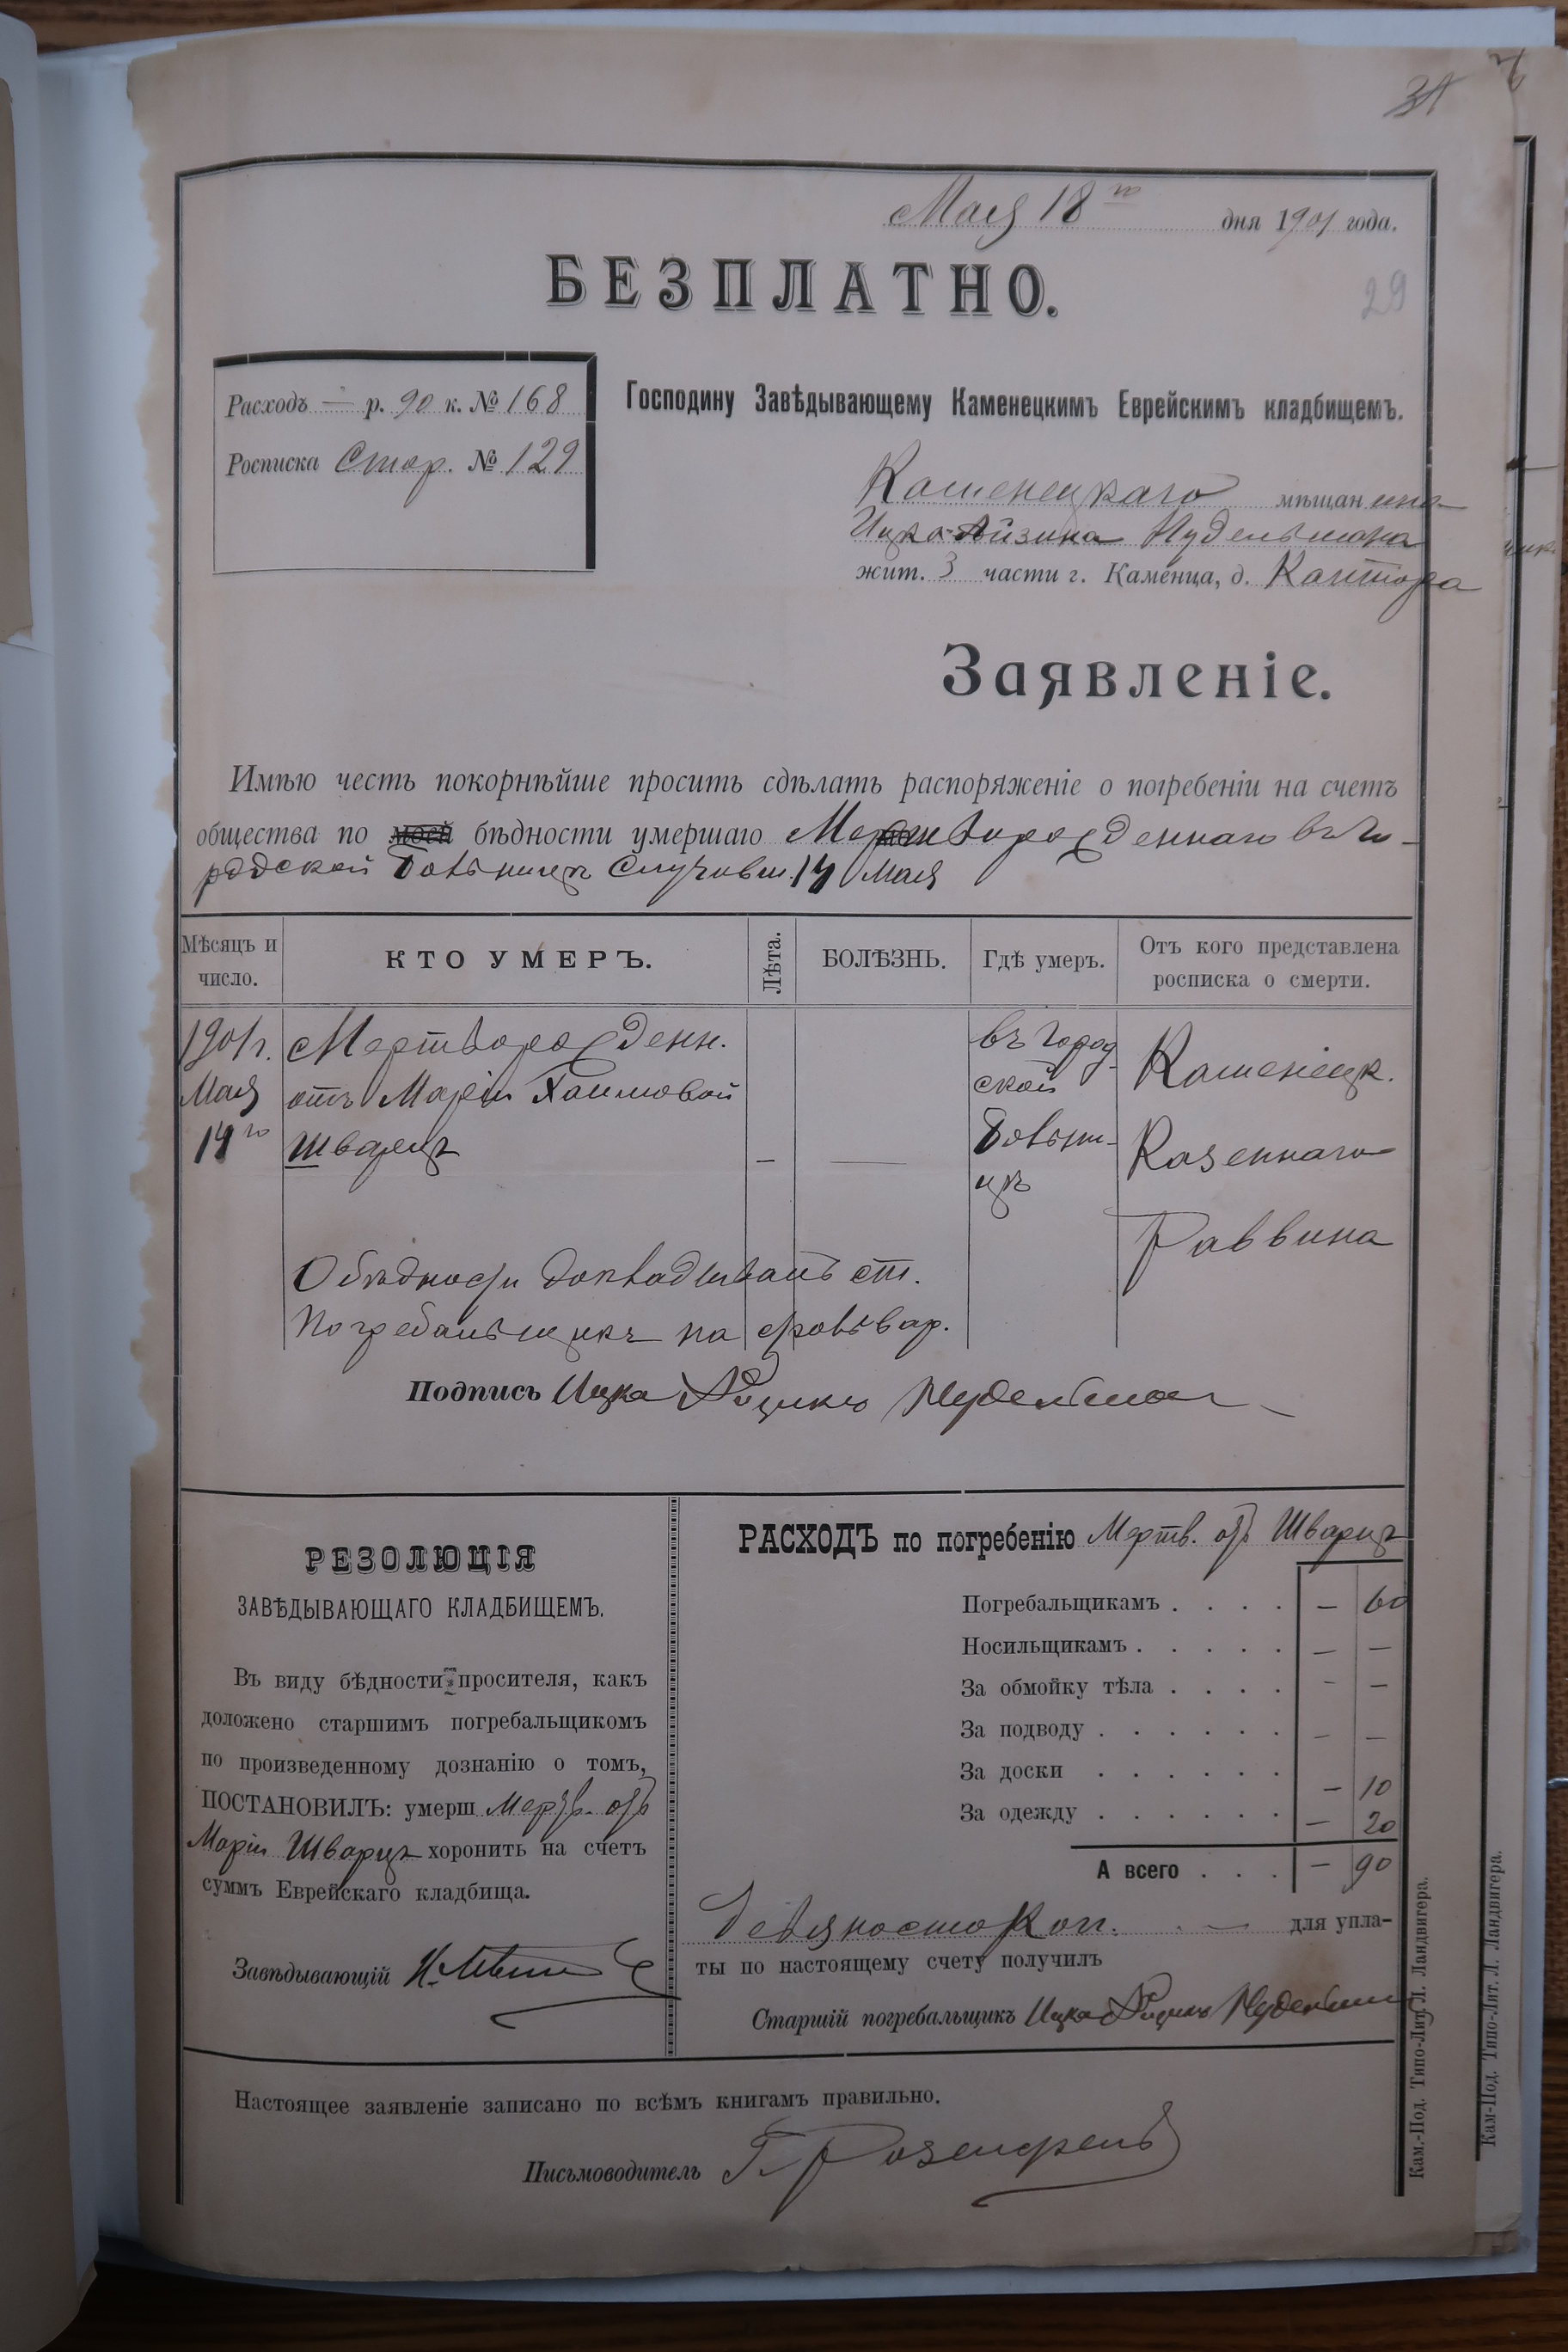 31
Мая 18го дня 1901 года.
БЕЗПЛАТНО.
29
Расходъ — р. 90 к. № 168
Росписка Стор. № 129
Господину Завѣдывающему Каменецкимъ Еврейскимъ кладбищемъ.
Каменецкаго мѣщанина
Ицка-Айзика Нудельмана
жит. 3 части г. Каменца, д. Кантора
Заявленіе.
Имѣю честь покорнѣйше просить сдѣлать распоряженіе о погребеніи на счетъ
общества по моей бѣдности умершаго Мертворожденнаго въ Го-
родской больницѣ случивш. 14 Мая
Мѣсяцъ и число.
КТО УМЕРЪ.
Лѣта.
БОЛѢЗНЬ.
Гдѣ умеръ.
Отъ кого представлена росписка о смерти.
1901 г.
Мая
14го
Мертворожденн.
отъ Маріи Хаимовой
Шварцъ
—
—
въ Город-
ской
больни-
цѣ
Каменецк.
Казеннаго
Раввина
О бѣдности докладывалъ ст.
Погребальщикъ на
Подпись Ицка Айзикъ Нудельман
РЕЗОЛЮЦІЯ
ЗАВѢДЫВАЮЩАГО КЛАДБИЩЕМЪ.
Въ виду бѣдности просителя, какъ
доложено старшимъ погребальщикомъ
по произведенному дознанію о томъ,
ПОСТАНОВИЛЪ: умерш Мертв. отъ
Маріи Шварцъ хоронить на счетъ
суммъ Еврейскаго кладбища.
Завѣдывающій
РАСХОДЪ по погребенію Мертв. отъ Шварцъ
Погребальщикамъ . . . . — 60
Носильщикамъ . . . . . — —
За обмойку тѣла . . . . — —
За подводу . . . . . . — —
За доски . . . . . . — 10
За одежду . . . . . . — 20
А всего . . . — 90
Девяносто коп. — для упла-
ты по настоящему счету получилъ
Старшій погребальщикъ Ицка Айзикъ Нудельман
Настоящее заявленіе записано по всѣмъ книгамъ правильно.
Письмоводитель Г. Розенфельд
Кам.-Под. Типо-Лит. Л. Ландвигера.
Кам-Под. Типо-Лит. Л. Ландвигера.